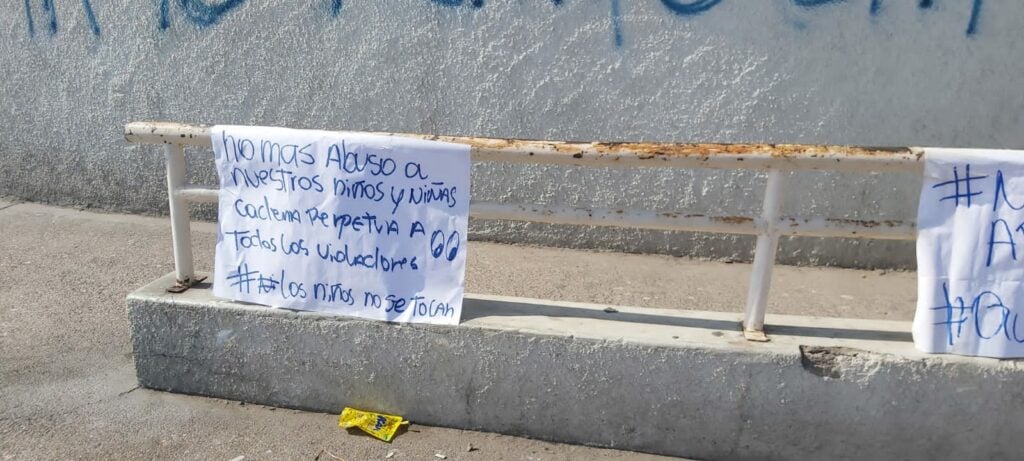 No mas Abuso a
nuestros niños y NiÑas
Cadena Perpetua A
Todos los violadores
## los niños no se tocan
#
#